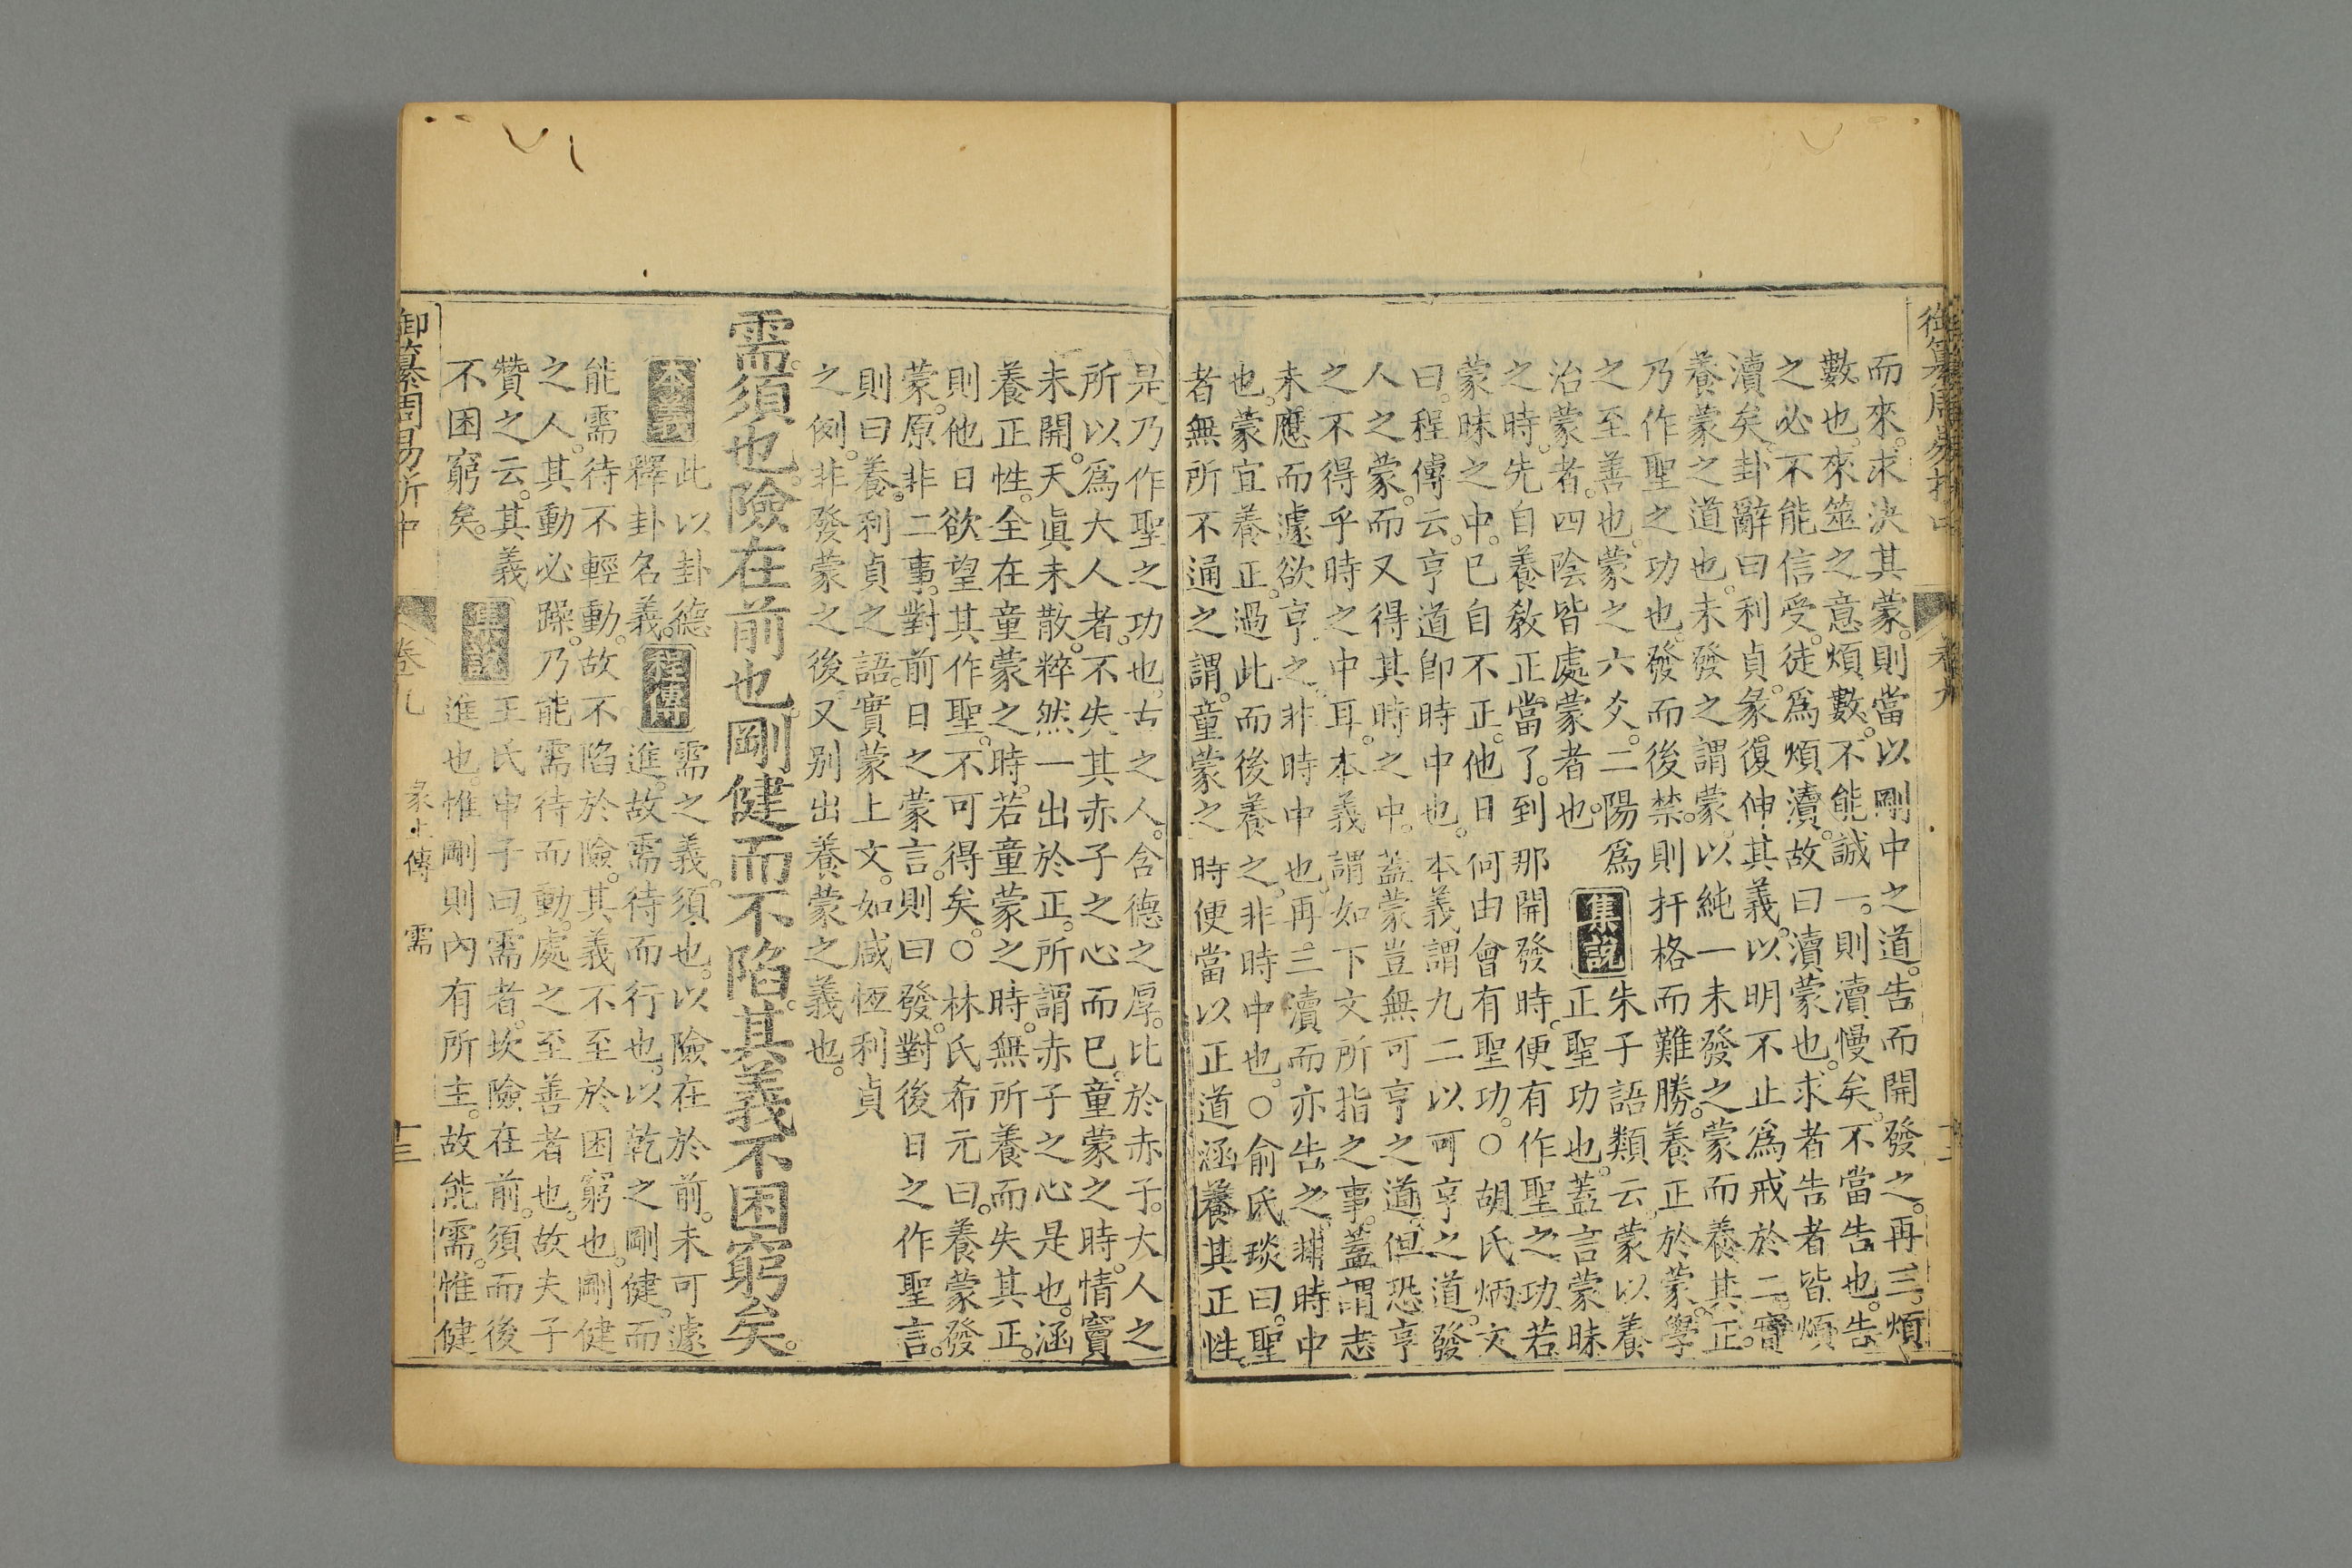 御纂周易折中 卷九 十二
而來。求決其蒙。則當以剛中之道。告而開發之。再三。煩
數也。來筮之意煩數。不能誠一。則瀆慢矣。不當告也。告
之必不能信受。徒爲煩瀆。故曰瀆蒙也。求者告者皆煩
瀆矣。卦辭曰利貞。彖復伸其義。以明不止爲戒於二。實
養蒙之道也。未發之謂蒙。以純一未發之蒙而養其正。
乃作聖之功也。發而後禁。則扞格而難勝。養正於蒙。學
之至善也。蒙之六爻。二陽爲
治蒙者。四陰皆處蒙者也。
集說
朱子語類云。蒙以養
正聖功也。蓋言蒙昧
之時。先自養敎正當了。到那開發時。便有作聖之功。若
蒙昧之中。已自不正。他日何由會有聖功。○胡氏炳文
曰。程傳云。亨道卽時中也。本義謂九二以可亨之道。發
人之蒙。而又得其時之中。蓋蒙豈無可亨之道。但恐亨
之不得乎時之中耳。本義謂如下文所指之事。蓋謂志
未應而遽欲亨之。非時中也。再三瀆而亦告之。非時中
也。蒙宜養正。過此而後養之。非時中也。○俞氏琰曰。聖
者無所不通之謂。童蒙之時便當以正道涵養其正性。
是乃作聖之功也。古之人。含德之厚。比於赤子。大人之
所以爲大人者。不失其赤子之心而已。童蒙之時。情竇
未開。天眞未散。粹然一出於正。所謂赤子之心是也。涵
養正性。全在童蒙之時。若童蒙之時。無所養而失其正。
則他日欲望其作聖。不可得矣。○林氏希元曰。養蒙發
蒙。原非二事。對前日之蒙言。則曰發。對後日之作聖言。
則曰養。利貞之語。實蒙上文。如咸恆利貞
之例。非發蒙之後。又别出養蒙之義也。
需。須也。險在前也。剛健而不陷。其義不困窮矣。
本義
此以卦德
釋卦名義。
程傳
需之義。須也。以險在於前。未可遽
進。故需待而行也。以乾之剛健。而
能需待不輕動。故不陷於險。其義不至於困窮也。剛健
之人。其動必躁。乃能需待而動。處之至善者也。故夫子
贊之云。其義
不困窮矣。
集說
王氏申子曰。需者。坎險在前。須而後
進也。惟剛則內有所主。故能需。惟健
御纂周易折中 卷九 彖上傳 需 十三